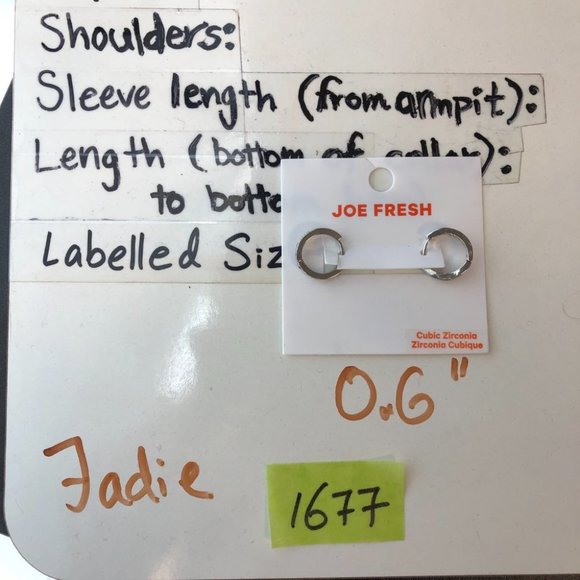 Shoulders:
Sleeve length (from armpit):
Length (bottom of collar):
to botto
Labelled Siz
JOE FRESH
Cubic Zirconia
Zirconia Cubique
0.6"
Jadie
1677